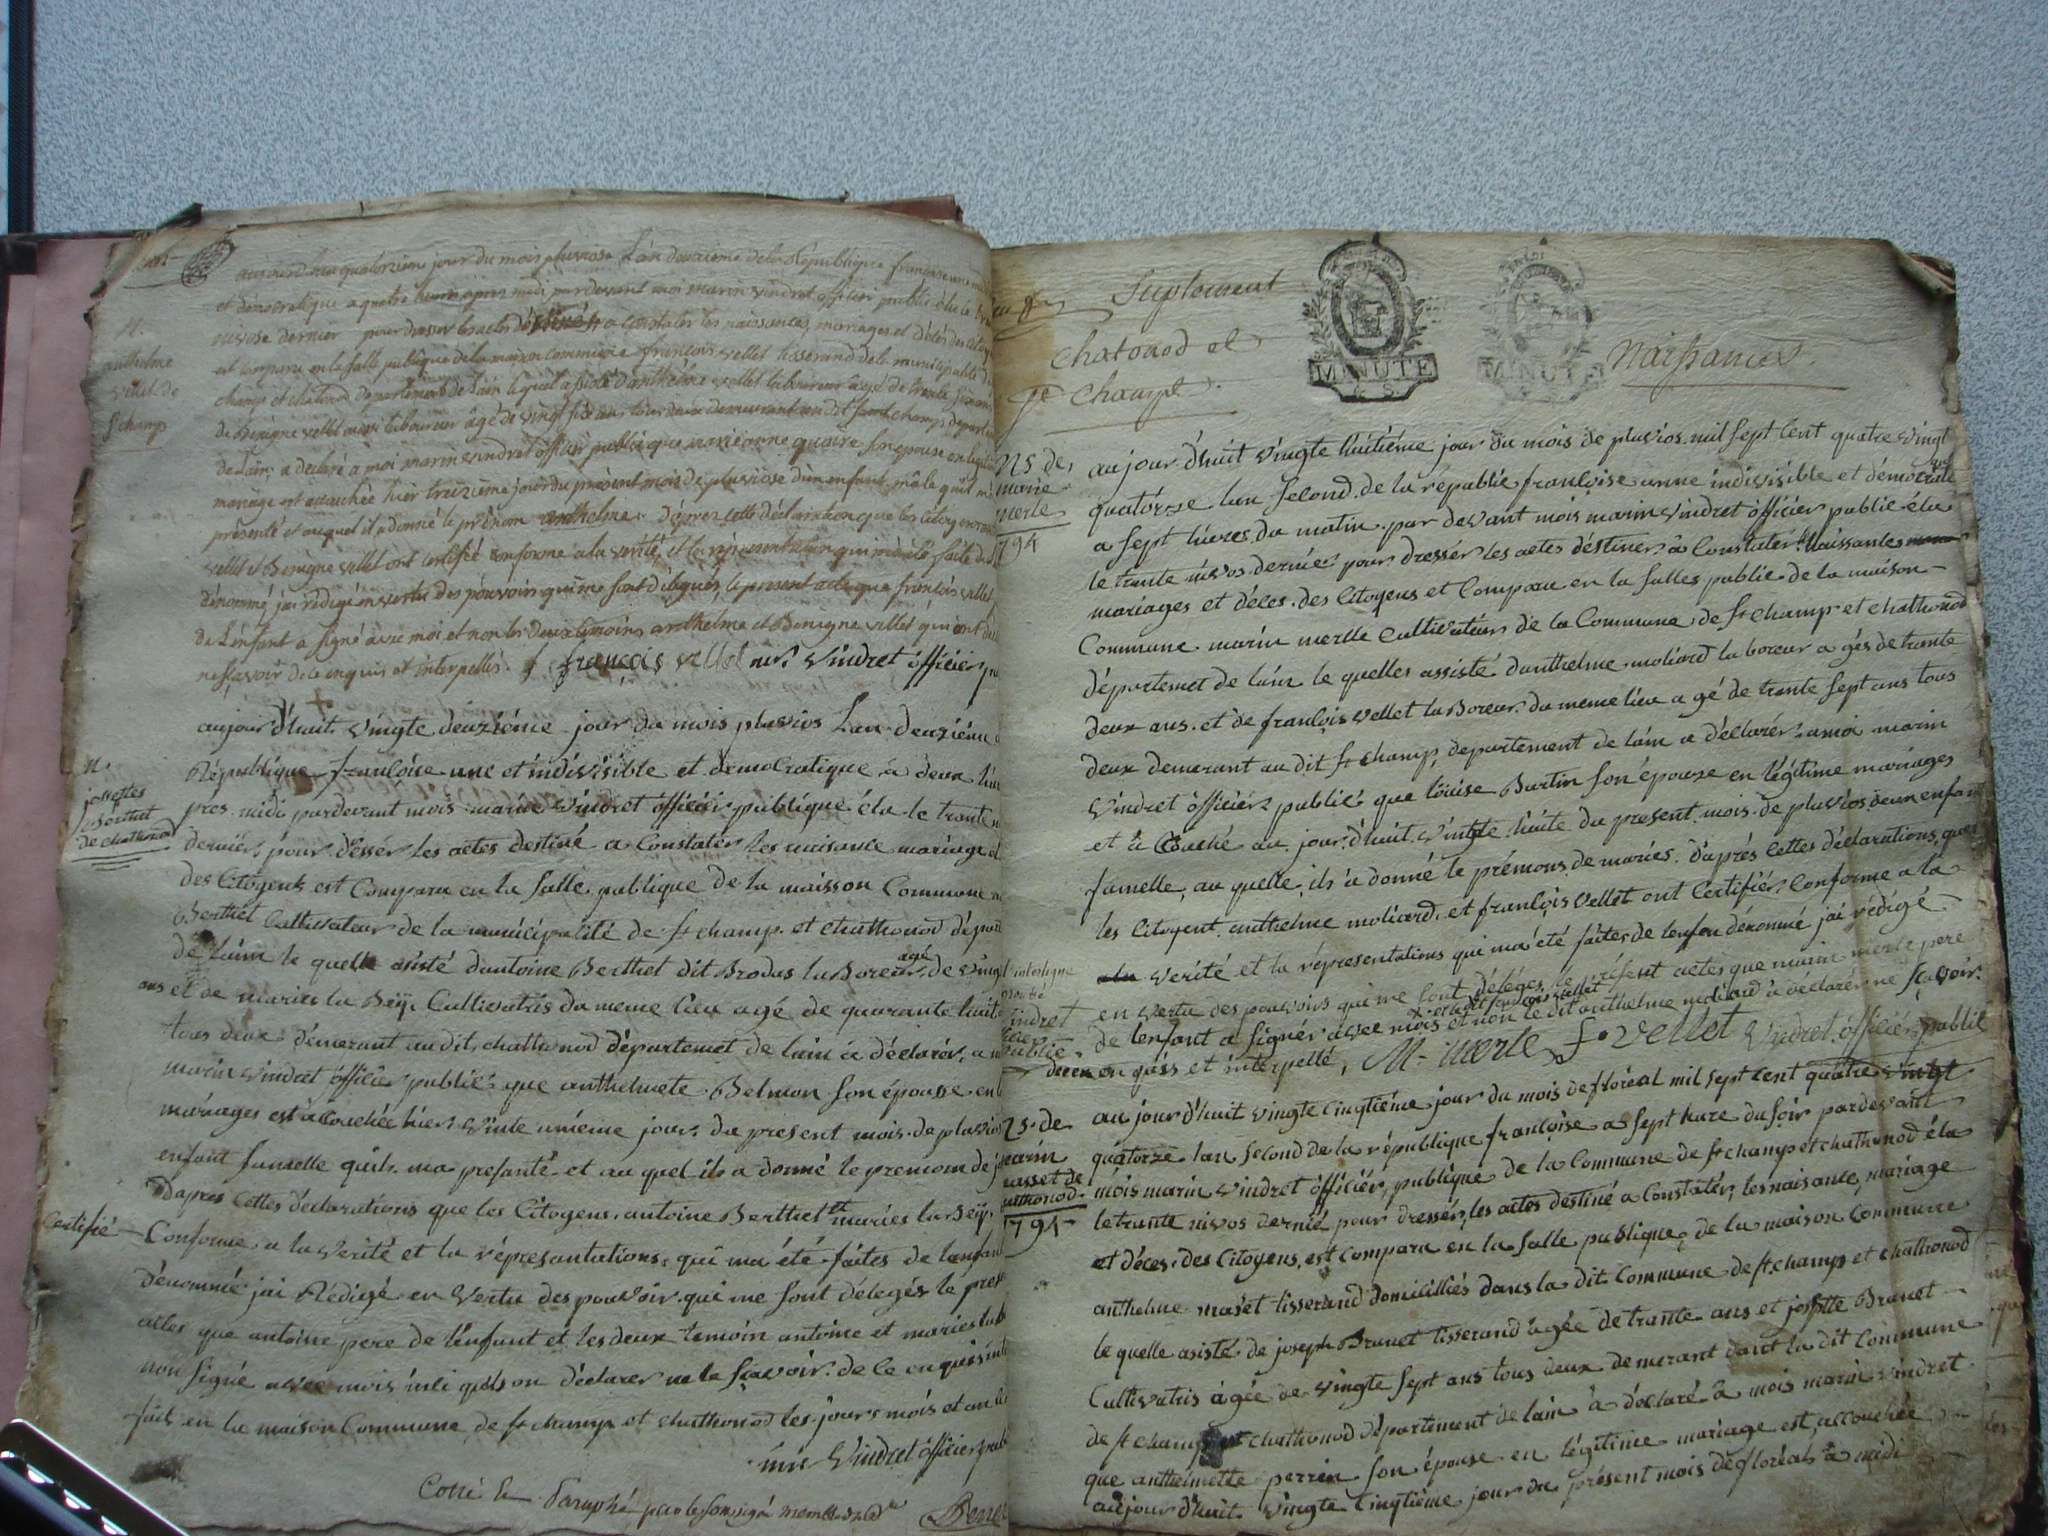 aujourd'hui quatorzieme jour du mois pluviose L'an deuxieme de la République francaise une
et démocratique a quatre heures apres midi pardevant moi marin vindret officier public élu le
nivose dernier pour dresser les actes destinés a constater les naissances, mariages et décès des
est comparu en la salle publique de la maison commune françois vellet tisserand de la municipalité de
champ et chatonod département de Lain lequel assisté d'anthelme vellet laboureur âgé de trente
de Benigne vellet aussi laboureur âgé de vingt six ans tous deux demeurant au dit saint champ
de Lain; a declaré a moi marin vindret officier public que marianne son epouse en
mariage est accouchée hier treizieme jour du présent mois de pluviose d'un enfant mâle qu'il m'a
présenté et auquel il a donné le prénom anthelme. d'après cette déclaration que les citoyens
vellet et Benigne vellet ont certifié conforme a la verité, et la représentation qui m'a été faite de
dénommé, j'ai rédigé en vertu des pouvoirs qui me sont délégués, le present acte que françois vellet
de L'enfant a signé avec moi et non les deux témoins anthelme et Benigne vellet qui ont
ne sçavoir de ce enquis et interpellés. françois vellet mr. Vindret officier
N.
anthelme
vellet de
st champ
aujourd'huit vingte deuziéme jour du mois pluvios Lan deuziéme
République francoise une et indivisible et démocratique a deux
pres midi pardevant mois marin vindret officiér publique élu le trante
derniér, pour désser les actes destiné a Constater les naisance mariage et
des Citoyens est Comparu en la salle publique de la maisson Commune
Berthet Cultivateur de la municipalité de st champ et chathonod
de Lain le quelle asisté d'antoine Berthet dit Brodas la Boreur agé de
ans et de maries la Beÿ, Cultivatris du meme lieu agé de quarante huit
tous deux démerant au dit chathonod départemet de lain a déclarér, a
marin vindret officié publié que anthelmete Belmon son épousse en
mariages est accouchée hier vinte uniéme jour du present mois de
enfant fumelle quils ma presanté et au quel ils a donné le prenom de
N.
josettes
Berthet
de chathonod
Dapres cettes déclarations que les Citoyens antoine Berthet et maries la Beÿ,
Certifié Conforme a la verité et la réprésantations qui ma été faites de
dénommé jai Rédigé en vertu des pouvoir qui me sont délegés le
actes que antoine pere de l'enfant et les deux temoin antoine et maries
non signé avec mois qils on déclarer ne le sçavoir de ce enquis
fait en la maison Commune de st champ et chathonod les jours mois et an
mr Vindret officier
Cotté & Paraphé par le soussigné membre
Suplement
chatonod et
st champ
MINUTE
MINUTE
Naissances
NS de
marie
merle
1794
aujour d'huit vingte huitiéme jour du mois de pluvios mil sept cent quatre vingt
quatorze lan second de la républic françoise unne indivisible et démocratique
a sept hures du matin par devant mois marin vindret officiér publie élu
le trante nivos derniér pour dressér les actes déstiner a Constater Naissances
mariages et déces des Citoyens et Comparu en la salles public de la maison
Commune marin merlle Cultivateur de la Commune de st champ et chathonod
départemet de lain le quelles assisté danthelme moliard la boreur a gés de trante
deux ans et de françois vellet la Boreur du meme lieu a gé de trante sept ans tous
deux demerant au dit st champ, departement de lain a déclarér a moi marin
vindret officiér publié que loüise Burtin son épouze en légitime mariages
et a Couché au jour d'huit vingte huite du present mois de pluvios deun enfan
fumelle au quelle ils a donné le prémons de maries. Daprés cettes déclarations que
les Citoyent anthelme moliard et françois vellet ont certifiér Conforme a la
verité et la répresentations qui ma été faites de lenfen dénommé jai rédigé
en vertu des pouvoirs qui me sont délégés le présent actes que marin merle pere
de lenfant a signér avec mois et le dit françois vellet et non le dit anthelme moliard a déclarér ne sçavoir
de ce en qéss et interpellé, M. merle f. vellet vindret officiér public
vindret
publié
NS. de
marin
masset de
chathonod
1794
au jour d'huit vingte cinqtiéme jour du mois de floréal mil sept cent quatre vingt
quatorze lan second de la république françoise a sept hure du soir pardevant
mois marin vindret officiér, publique de la Commune de st champ et chathonod élu
le trante nivos dernié pour dressér, les actes destiné a Constatér, les naisance, mariage
et déces des Citoyens, est comparu en la salle publique de la maison Commune
anthelme maset tisserand domicilliés dans la dit Commune de st champ et chathonod
le quelle asisté de joseph Brunet tisserand agée de trante ans et josette Brunet
Cultivatris agée de vingte sept ans tous deux demerant dant la dit Commune
de st champ et chathonod département de lain a déclaré a mois marin vindret
que anthelmette perrin son épouse en légitime mariage est, accouchée
aujour d'huit vingte cinqtiéme jour du présent mois de floréal a midi